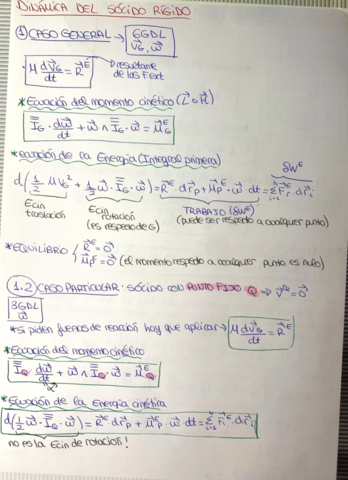 DINÁMICA DEL SÓLIDO RÍGIDO
① CASO GENERAL → 6GDL V⃗_G, ω⃗
· M dV⃗_G/dt = R⃗^E → resultante de las Fext
* Ecuación del momento cinético (L⃗ o H⃗)
I̿_G · dω⃗/dt + ω⃗ ∧ I̿_G · ω⃗ = M⃗_G^E
* ecuación de la Energía (Integral primera)
δW^E
d(1/2 M V_G² + 1/2 ω⃗ · I̿_G · ω⃗) = R⃗^E · dr⃗_P + M⃗_P^E · ω⃗ dt = Σ_{i=1}^n F⃗_i^E · dr⃗_i
Ecin traslación
Ecin rotación (es respecto de G)
TRABAJO (δW^E) (puede ser respecto a cualquier punto)
* EQUILIBRIO { R⃗^E = 0⃗
M⃗^E = 0⃗ (el momento respecto a cualquier punto es nulo)
1.2) CASO PARTICULAR: SÓLIDO CON PUNTO FIJO Q ⇒ V⃗^Q = 0⃗
3GDL ω⃗
* si piden fuerzas de reacción hay que aplicar → M dV⃗_G/dt = R⃗^E
* Ecuación del momento cinético
I̿_Q · dω⃗/dt + ω⃗ ∧ I̿_Q · ω⃗ = M⃗_Q^E
* Ecuación de la Energía cinética
d(1/2 ω⃗ · I̿_Q · ω⃗) = R⃗^E · dr⃗_P + M⃗_P^E · ω⃗ dt = Σ_{i=1}^n F⃗_i^E · dr⃗_i
no es la Ecin de rotación!